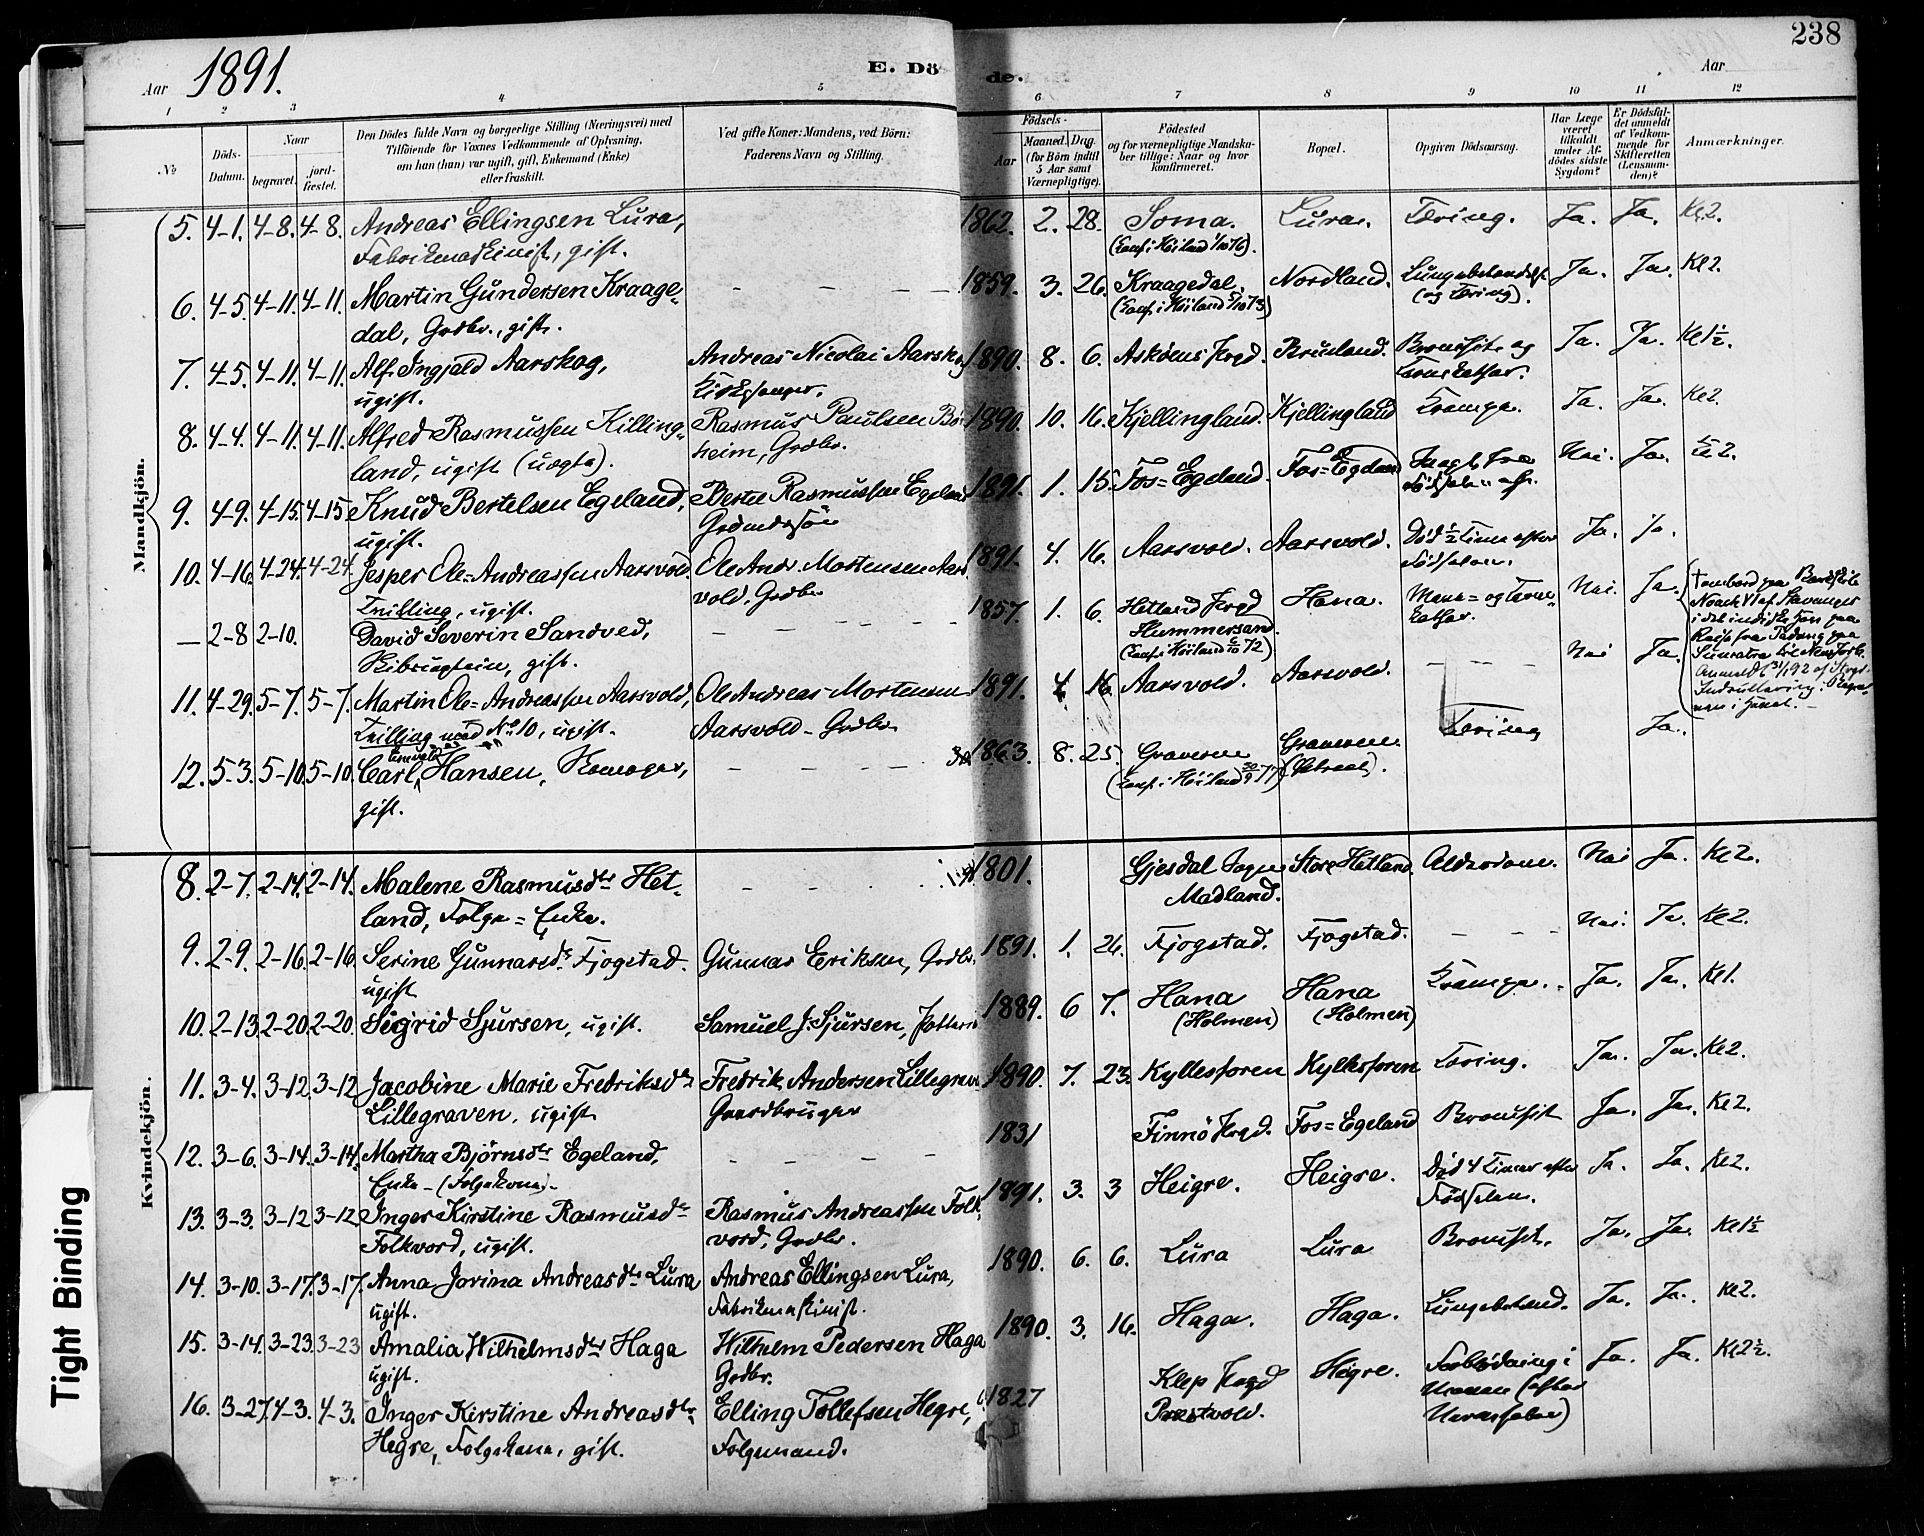 238
Aar 1891.
E. Dö
de.
Aar
1 2 3 4 5 6 7 8 9 10 11 12
No
Döds-
Datum.
Naar
begravet.
jord-
fæstet.
Den Dödes fulde Navn og borgerlige Stilling (Næringsvei) med
Tilföiende for Voxnes Vedkommende af Oplysning,
om han (hun) var ugift, gift, Enkemand (Enke)
eller fraskilt.
Ved gifte Koner: Mandens, ved Börn:
Faderens Navn og Stilling.
Födsels-
Aar
Maaned.
Dag.
(for Börn indtil
5 Aar samt
Værnepligtige).
Födested
og for værnepligtige Mandska-
ber tillige: Naar og hvor
konfirmeret.
Bopæl.
Opgiven Dödsaarsag.
Har Læge
været
tilkaldt
under Af-
dödes sidste
Sygdom?
Er Dödsfal-
det anmeldt
af Vedkom-
mende for
Skifteretten
(Lensman-
den)?
Anmærkninger.
Mandkjön.
5. 4-1. 4-8. 4-8. Andreas Ellingsen Lura, 1862. 2. 28. Soma. Lura. Tæring. Ja. Ja. Kl 2.
Fabrikmaskinist, gift. (Conf. i Höiland 1/10 76).
6. 4-5. 4-11. 4-11. Martin Gundersen Kraage- 1859. 3. 26. Kraagedal. Nordland. Ja. Ja. Kl 2.
dal, Grdbr., gift. (Conf. i Höiland 5/10 73) (og Tæring).
7. 4-5. 4-11. 4-11. Alf Ingjald Aarskog, Andreas Nicolai Aarskog 1890. 8. 6. Prgd. Bruland. og Ja. Ja. Kl 1½.
ugift. Kirkesanger.
8. 4-4. 4-11. 4-11. Alfred Rasmussen Killing- Rasmus Paulsen 1890. 10. 16. Kjellingland. Kjellingland Krampe. Ja. Ja. Kl 2.
land, ugift (uægte). heim, Grdbr.
9. 4-9. 4-15. 4-15 Knud Bertelsen Egeland, Bertel Rasmussen Egeland 1891. 1. 15. Fos=Egeland. Fos=Egeland fra Nei. Ja. Kl 2.
ugift. Födselen af.
10. 4-16. 4-24. 4-24. Jesper Ole=Andreassen Aarsvold. Ole Andr. Mortensen Aars- 1891. 4. 16. Aarsvold. Aarsvold. Död ½ Time efter Ja. Ja.
Tvilling, ugift. vold. Grdbr Födselen.
— 2-8 2-10. David Severin Sandved, 1857. 1. 6. Hetland Prgd Hana. Mave= og Nei. Ja.
gift. Hummersand.
(Conf. i Höiland 6/10 72)
† ombord paa Barkskib
Noach VI af Stavanger
i det indiske Hav paa
Reise fra Padang paa
Sumatra til New York.
11. 4-29. 5-7. 5-7. Martin Ole=Andreassen Aarsvold, Ole Andreas Mortensen 1891. 4. 16. Aarsvold. Aarsvold. Nei Ja.
Tvilling med No 10, ugift. Aarsvold - Grdbr
12. 5-3. 5-10. 5-10. Carl Hansen, gift. 1863. 8. 25. Graveren Graveren Tæring Ja.
(Conf. i Höiland 30/9 77)
Kvindekjön.
8. 2-7. 2-14. 2-14. Malene Rasmusdtr Het- 1801. Gjesdal Sogn Store Hetland. Alderdom. Nei Ja. Kl 2.
land, Folge=Enke. Madland.
9. 2-9. 2-16. 2-16. Serine Gunnarsdtr Fjogstad. Gunnar Eriksen, Grdbr. 1891. 1. 26. Fjogstad. Fjogstad. Nei. Ja. Kl 2.
ugift
10. 2-13. 2-20. 2-20. Sigrid Sjursen, ugift. Samuel J. Sjursen, 1889. 6 7. Hana Hana Krampe. Ja. Ja. Kl 1.
(Holmen) (Holmen)
11. 3-4. 3-12. 3-12 Jacobine Marie Fredriksdtr Fredrik Andersen Lillegraven 1890. 7. 23. Kyllesforen Kyllesforen Tæring. Ja. Ja. Kl 2.
Lillegraven. ugift Gaardbruger
12. 3-6. 3-14. 3-14. Martha Björnsdtr Egeland, 1831 Finnö Prgd. Fos=Egeland Bronchit Ja. Ja. Kl 2.
Enke - (Folgekone).
13. 3-3. 3-12. 3-12 Inger Kirstine Rasmusdtr Rasmus Andreassen Folk- 1891. 3. 3 Heigre. Heigre. Död 4 Timer efter Ja. Ja. Kl 2.
Folkvord, ugift. vord, Grdbr. Födselen.
14. 3-10. 3-17. 3-17. Anna Jorina Andreasdtr Lura Andreas Ellingsen Lura, 1890. 6. 6. Lura Lura Bronchit. Ja. Ja. Kl 1½
ugift. Fabrikmaskinist.
15. 3-14. 3-23. 3-23 Amalia Wilhelmsdtr Haga Wilhelm Pedersen Haga 1890. 3. 16. Haga. Haga. Lungebetænd. Ja. Ja. Kl 2.
ugift. Grdbr.
16. 3-27. 4-3. 4-3. Inger Kirstine Andreasdtr Elling Tollefsen Hegre, 1827 Klep Prgd Hegre. Forblödning i Ja. Ja. Kl 2½.
Hegre, Folgekone, gift. Folgemand. (efter
Tight Binding